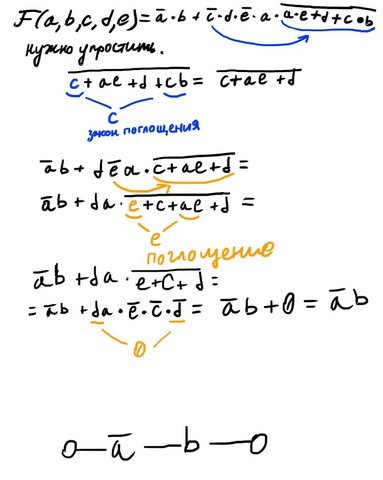 F(a,b,c,d,e)= a̅·b + c̅·d·e̅·a· \overline{a·e+d+c·b}
нужно упростить.
\overline{c+ae+d+cb} = \overline{c+ae+d}
c
закон поглощения
a̅b + de̅a · \overline{c+ae+d} =
a̅b + da · \overline{e+c+ae+d} =
e
поглощение
a̅b + da · \overline{e+c+d} =
= a̅b + da·e̅·c̅·d̅ = a̅b + 0 = a̅b
0
a̅ b